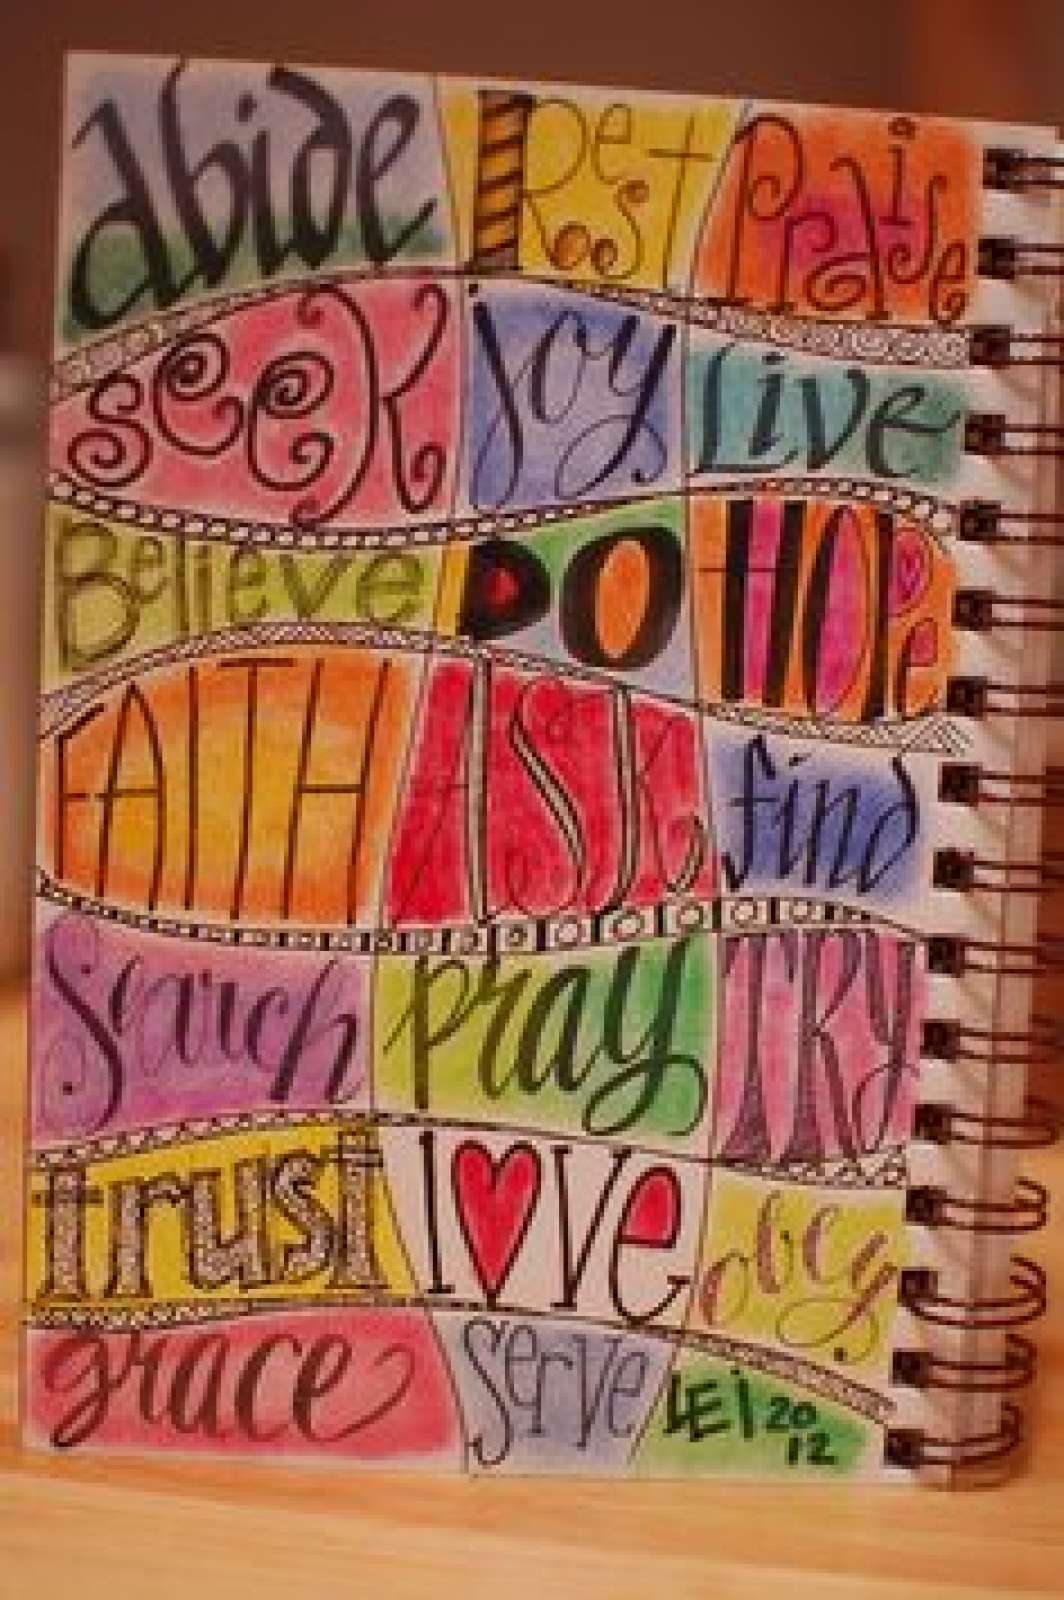 abide Rest Praise
seek Joy Live
Believe DO HOPe
FAITH ASK find
Search pray TRY
trust love obey
grace serve LEi 20
12